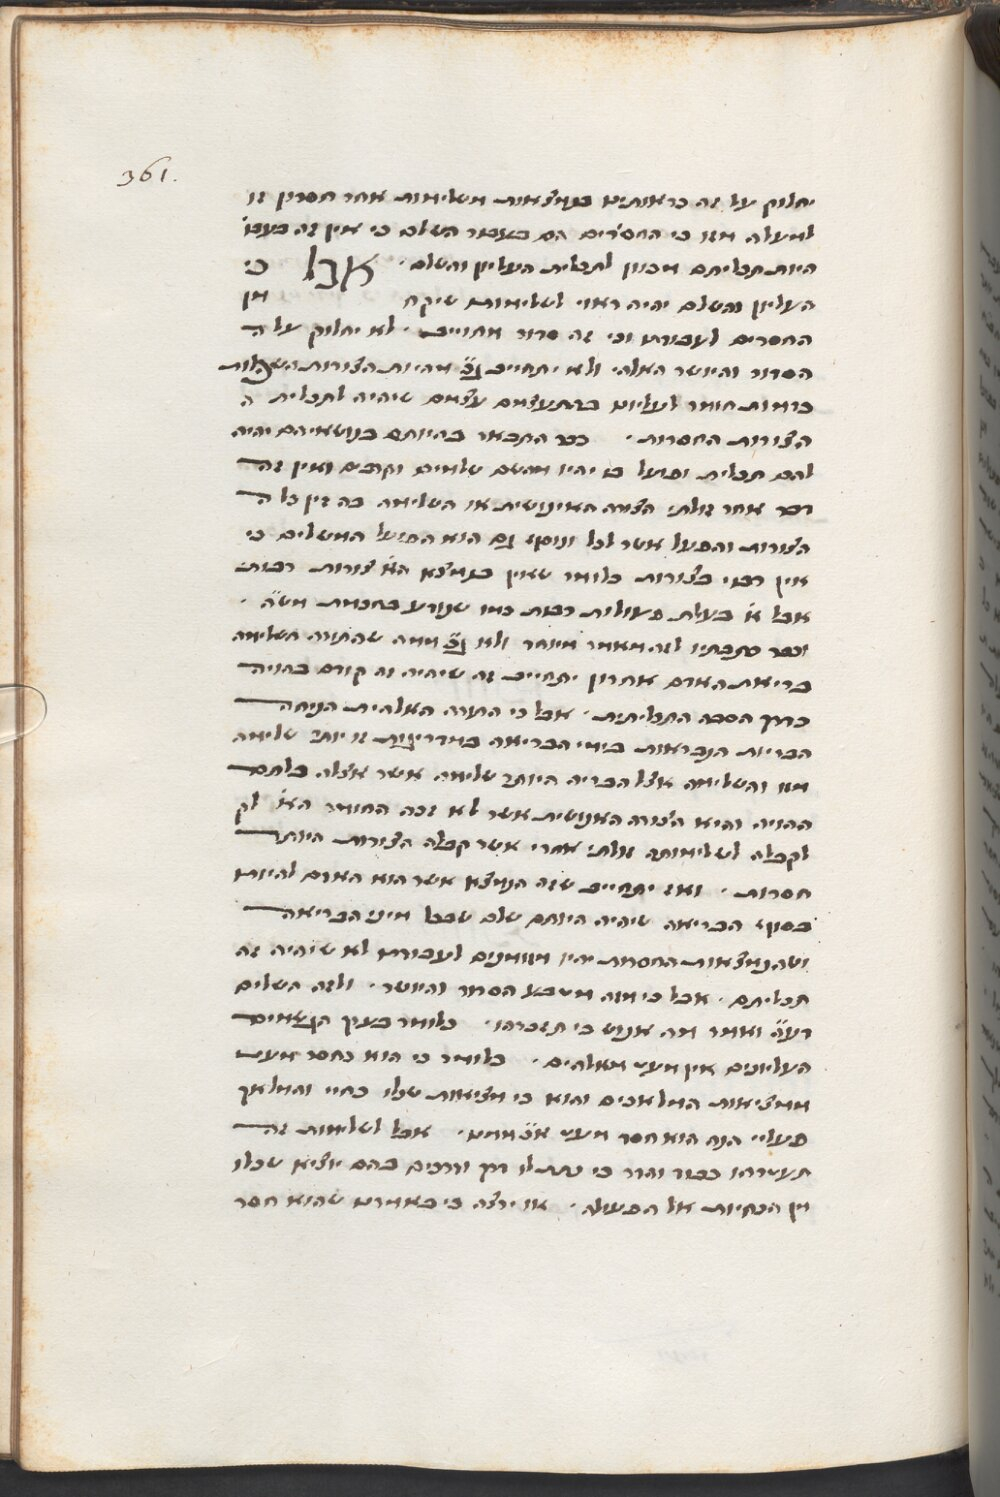 361.
יחלוק על זה בראותינו בנמצאות משלימות אחר חסרון זו
למעלה מזו כי החסרים הם בעבור השלם כי אין זה בעבור
היות תכליתם מכוון לתכלית העליון והשלם. אבל כי
העליון והשלם יהיה ראוי לשלימותו שיקח מן
החסרים לעבודתו וכי זה סדור מחוייב. לא יחלוק על ה
הסדור והיושר האלהי ולא יתחייב מהיות הצורות השפלות
כדמות חומר לעליון בהתעצמם עצמם שיהיה לתכלית ה
הצורות החסרות. כבר התבאר בהיותם בנושאיהם יהיה
להם תכלית ופועל בו יהיו מהשם שלמים וקרבים ואין זה
דבר אחר זולתי הצורה האינושית או השלימה בה זין כל ה
הצורות והפעל אשר לכל ונוסף גם הוא הפועל המשלים כי
אין רבוי בצורות כלומר שאין בנמצא הא' צורות רבות
אבל א' בעלת פעולות רבות כמו שנודע בחכמת
וכבר כתבתיו לזה מאמר מיוחד ולא ממה שהתורה השלימה
בריאת האדם אחרון יתחייב זה שיהיה זה קודם בהויה
כדרך הסבה התכליתית. אבל כי התורה האלהית הניחה
הבריות הנבראות בימי הבריאה במדריגות זו יותר שלימה
מזו והשלימה אצל הבריה היותר שלימה אשר אצלה כלתם
ההויה והיא הצורה האנושית אשר לא זכה החומר הא'
לקבלה לשלימותה זולתי אחרי אשר קבלה הצורות היותר
חסרות. ואז יתחייב שזה הנמצא אשר הוא האדם להיותו
בסוף הבריאה שיהיה היותם שלם שבכל מיני הבריאה
ושהנמצאות החסרות יהיו מזומנים לעבודתו לא שיהיה זה
תכליתם. אבל כי זה מטבע הסדור והיושר. ולזה השלים
ואמר מה אנוש כי תזכרנו. כלומר בערך הגשמים
העליונים אין מעט מאלהים. כלומר כי הוא נחסר מעט
ממציאות המלאכים והוא כי מציאות שכלו כחיי והמלאך
פעליי הנה הוא חסר מעט ממנו. אבל לשלימות זה
תעטרהו כבוד והדר כי נתת לו דרך ודרכים בהם יוציא שכלו
מן הכחיות אל הפעולה. או ירצה כי באמרו שהוא חסר